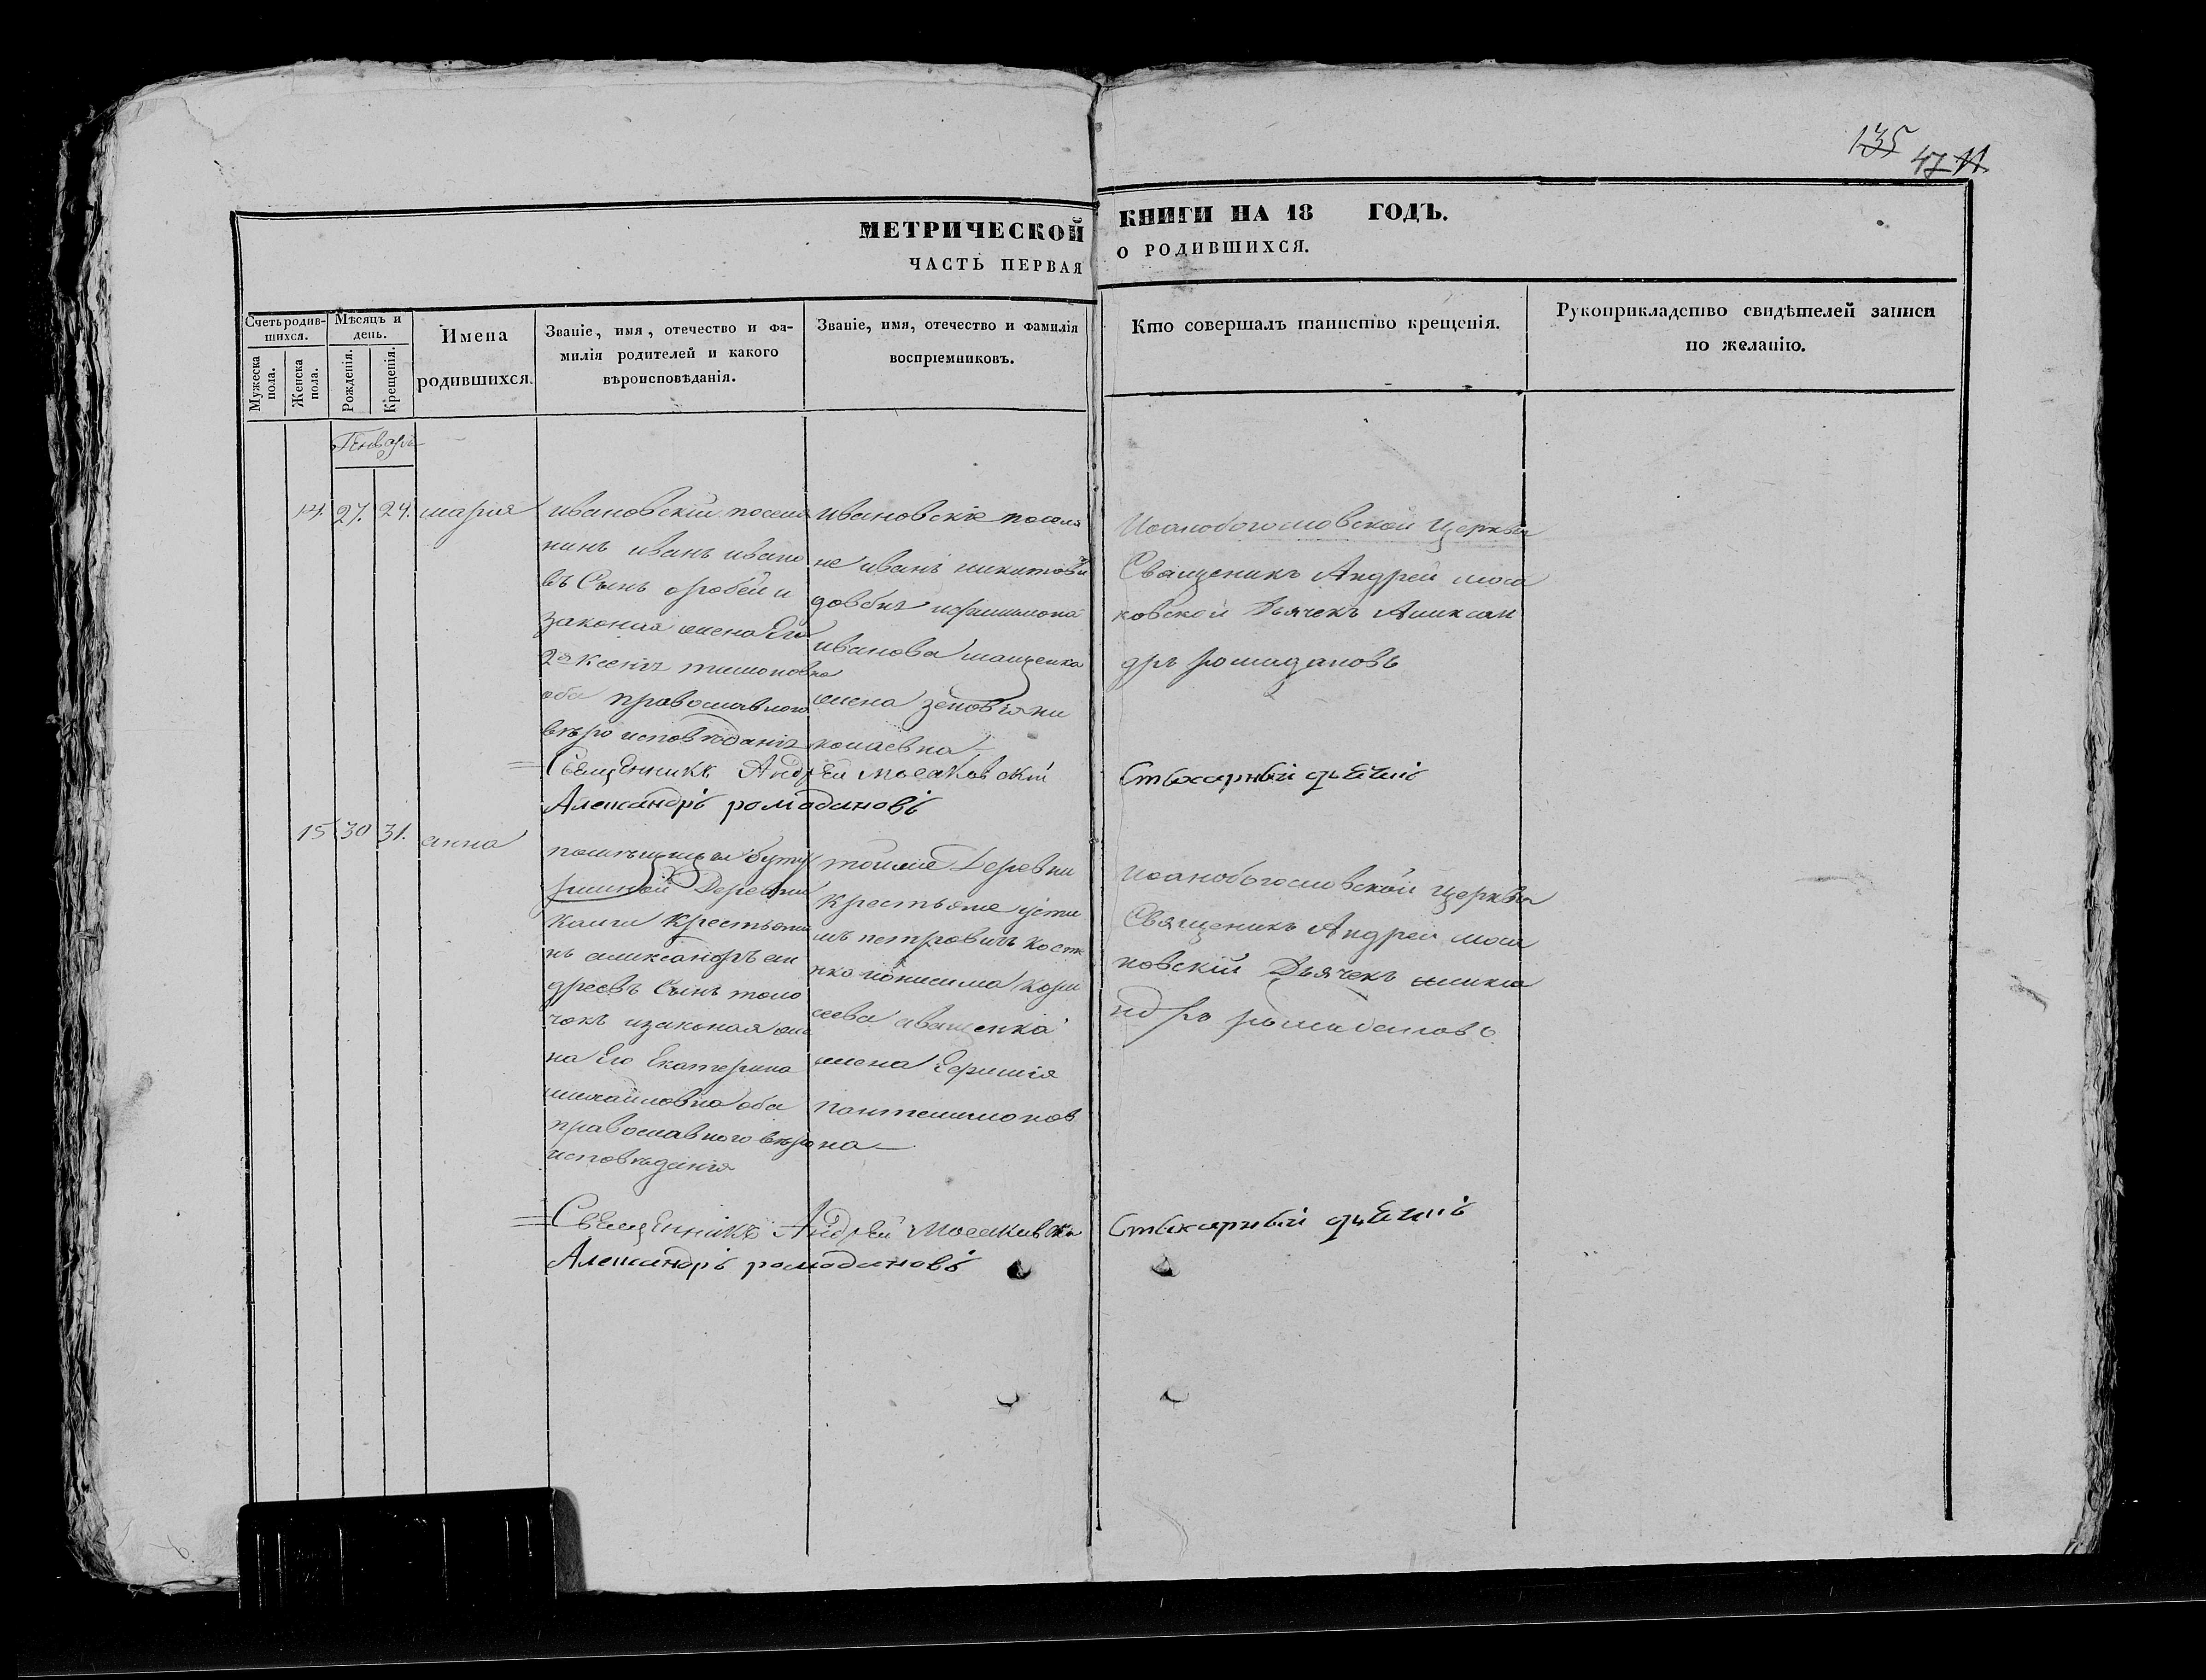 135
47 11
МЕТРИЧЕСКОЙ КНИГИ НА 18 ГОДЪ.
ЧАСТЬ ПЕРВАЯ О РОДИВШИХСЯ.
Счетъ родив-
шихся.
Мужеска
пола.
Женска
пола.
Мѣсяцъ и
день.
Рожденія.
Крещенія.
Имена
родившихся.
Званіе, имя, отечество и фа-
милія родителей и какого
вѣроисповѣданія.
Званіе, имя, отечество и фамилія
воспріемниковъ.
Кто совершалъ таинство крещенія.
Рукоприкладство свидѣтелей записи
по желанію.
Генварь
14. 27. 29. мария
ивановский посели
нинъ иванъ ивано
въ Сынъ оробей и
законая жена Его
2я Ксения тимоновна
оба православного
вѣро исповѣдания
ивановские поселя
не иванъ никитовъ
довбня
иванова
жена зеновия ни
колаевна
Иоанобогословской Церкви
Священикъ Андрей моса
ковской Дьячекъ Аликсан
дръ ромадановъ
Священникъ Андрей Мосаковский
Стихарный дьячекъ
Александръ ромодановъ
15 30 31. анна
помѣщицы
Деревни
крестьяни
нъ алиександръ ан
дреевъ Сынъ толо
чокъ и законая же
на Его Екатерина
михайловна оба
православного вѣро
исповѣдания
тойже Деревни
крестьяне усти
мъ петровичъ
жена
пантелимонов
на
иоанобогословской церкви
Священикъ Андрей моса
ковский Дьячекъ аликса
ндръ ромадановъ
Священникъ Андрей Мосаковски
Стихарный дьячекъ
Александръ ромодановъ